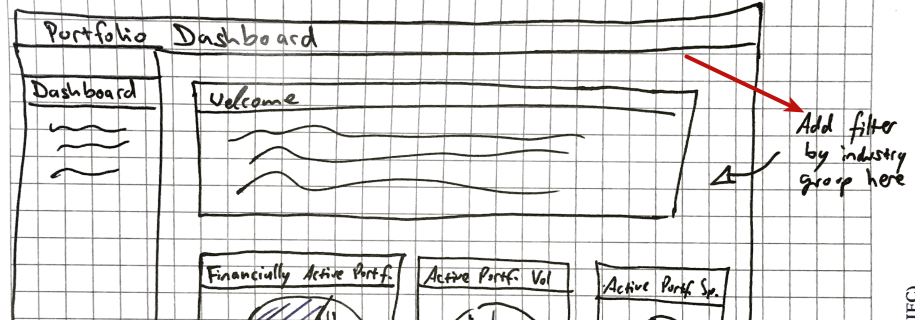 Portfolio Dashboard
Dashboard
Welcome
Add filter
by industry
group here
Financially Active Portf.
Active Portf. Vol
Active Portf. Sp.